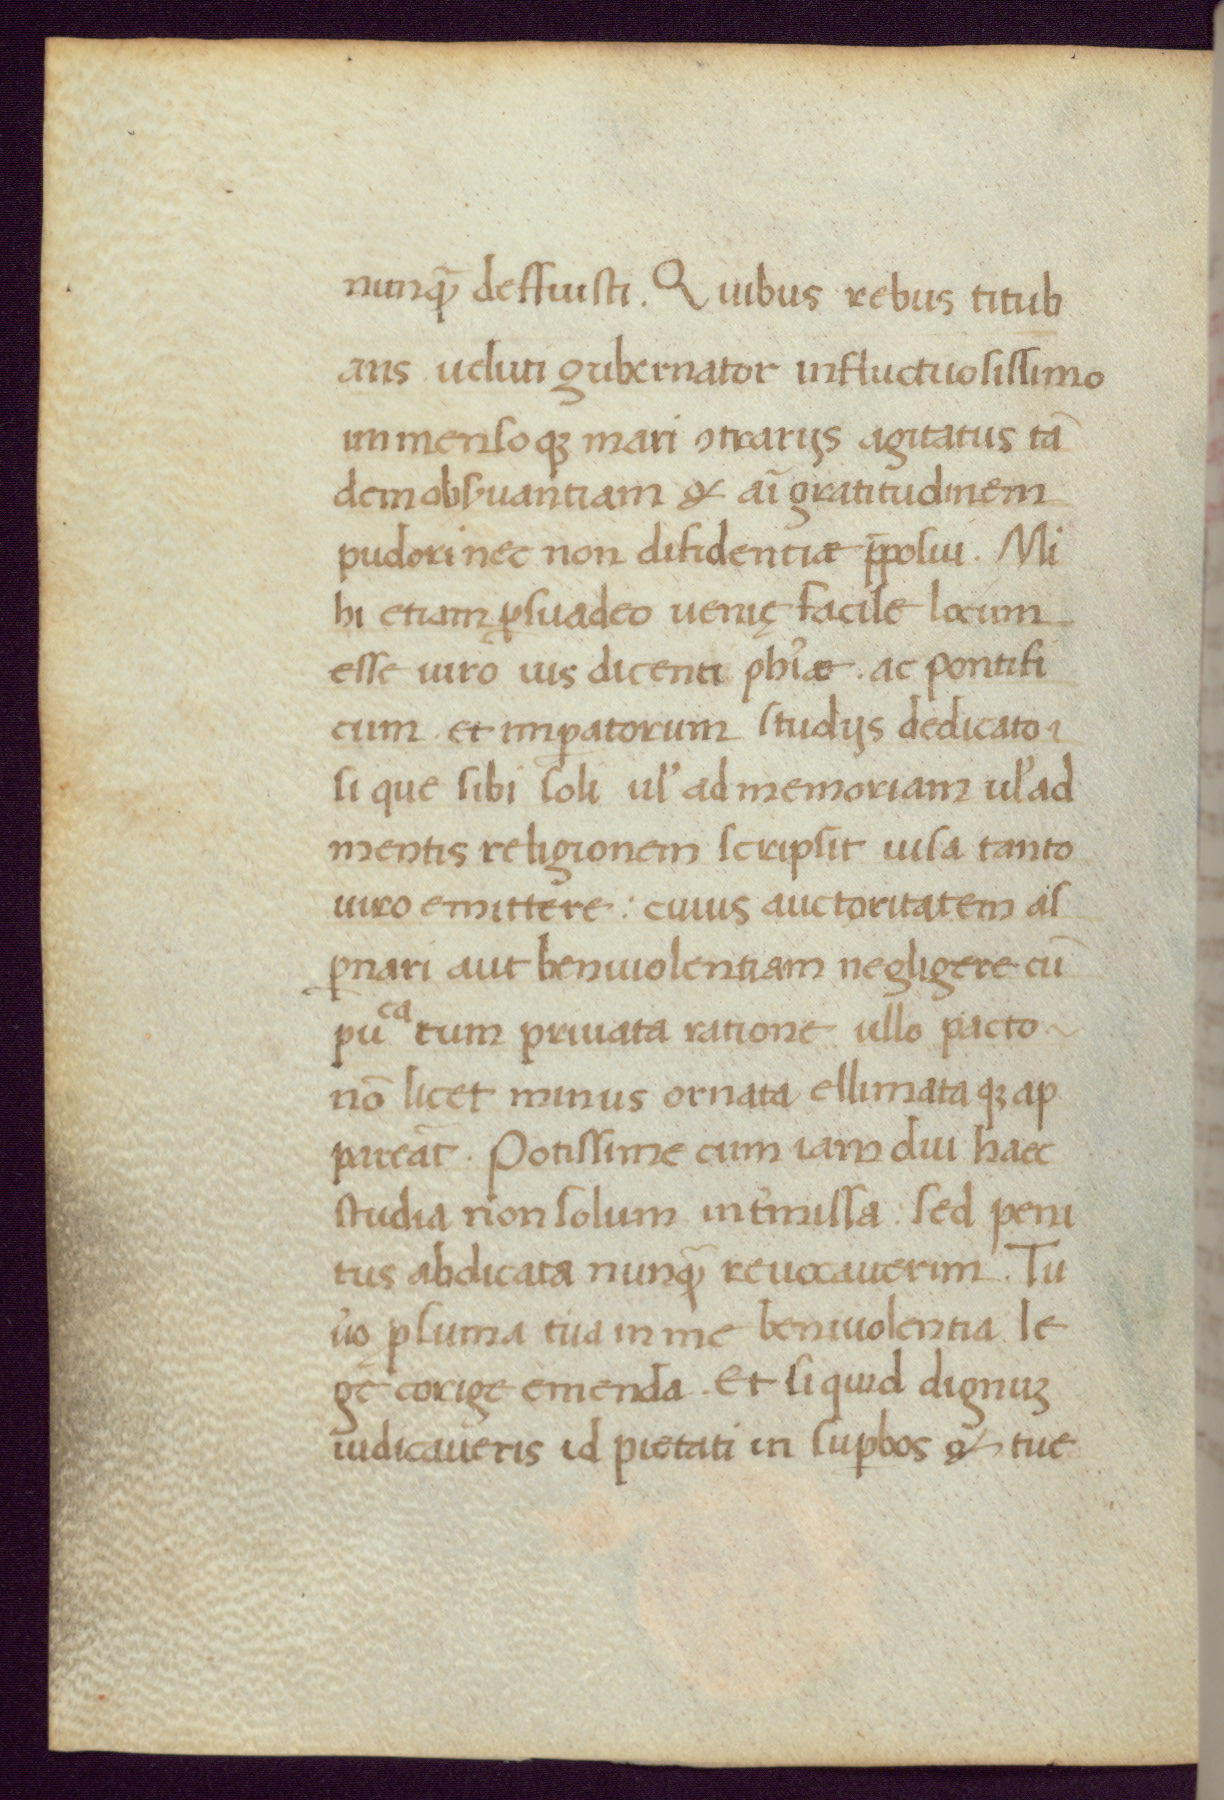 nunq̃ deffuisti. Quibus rebus titub
ans ueluti gubernator influctuosissimo
immensoqȝ mari ꝯtrarijs agitatus tā
dem obs̓uantiam & aī gratitudinem
pudori nec non difidentiæ p̄posui. Mi
hi etiam ꝑsuadeo uenię facile locum
esse uiro ius dicenti phi̓æ. ac pontifi
cum et imꝑatorum studijs dedicato
si que sibi soli ul̓ ad memoriam ul̓ ad
mentis religionem scripsit uisa tanto
uiro emittere: cuius auctoritatem as
ꝑnari aut beniuolentiam negligere cū
pu͞ca tum priuata ratione ullo pacto
nō licet minus ornata ellimataqȝ ap
pareāt. Potissime cum iam diu haec
studia non solum int̓missa: sed peni
tus abdicata nunq̃ reuocauerim. Tu
u̓o ꝓ suma tua in me beniuolentia le
ge corige emenda. Et si quid dignuȝ
iudicaueris id pietati in suꝑbos & tue